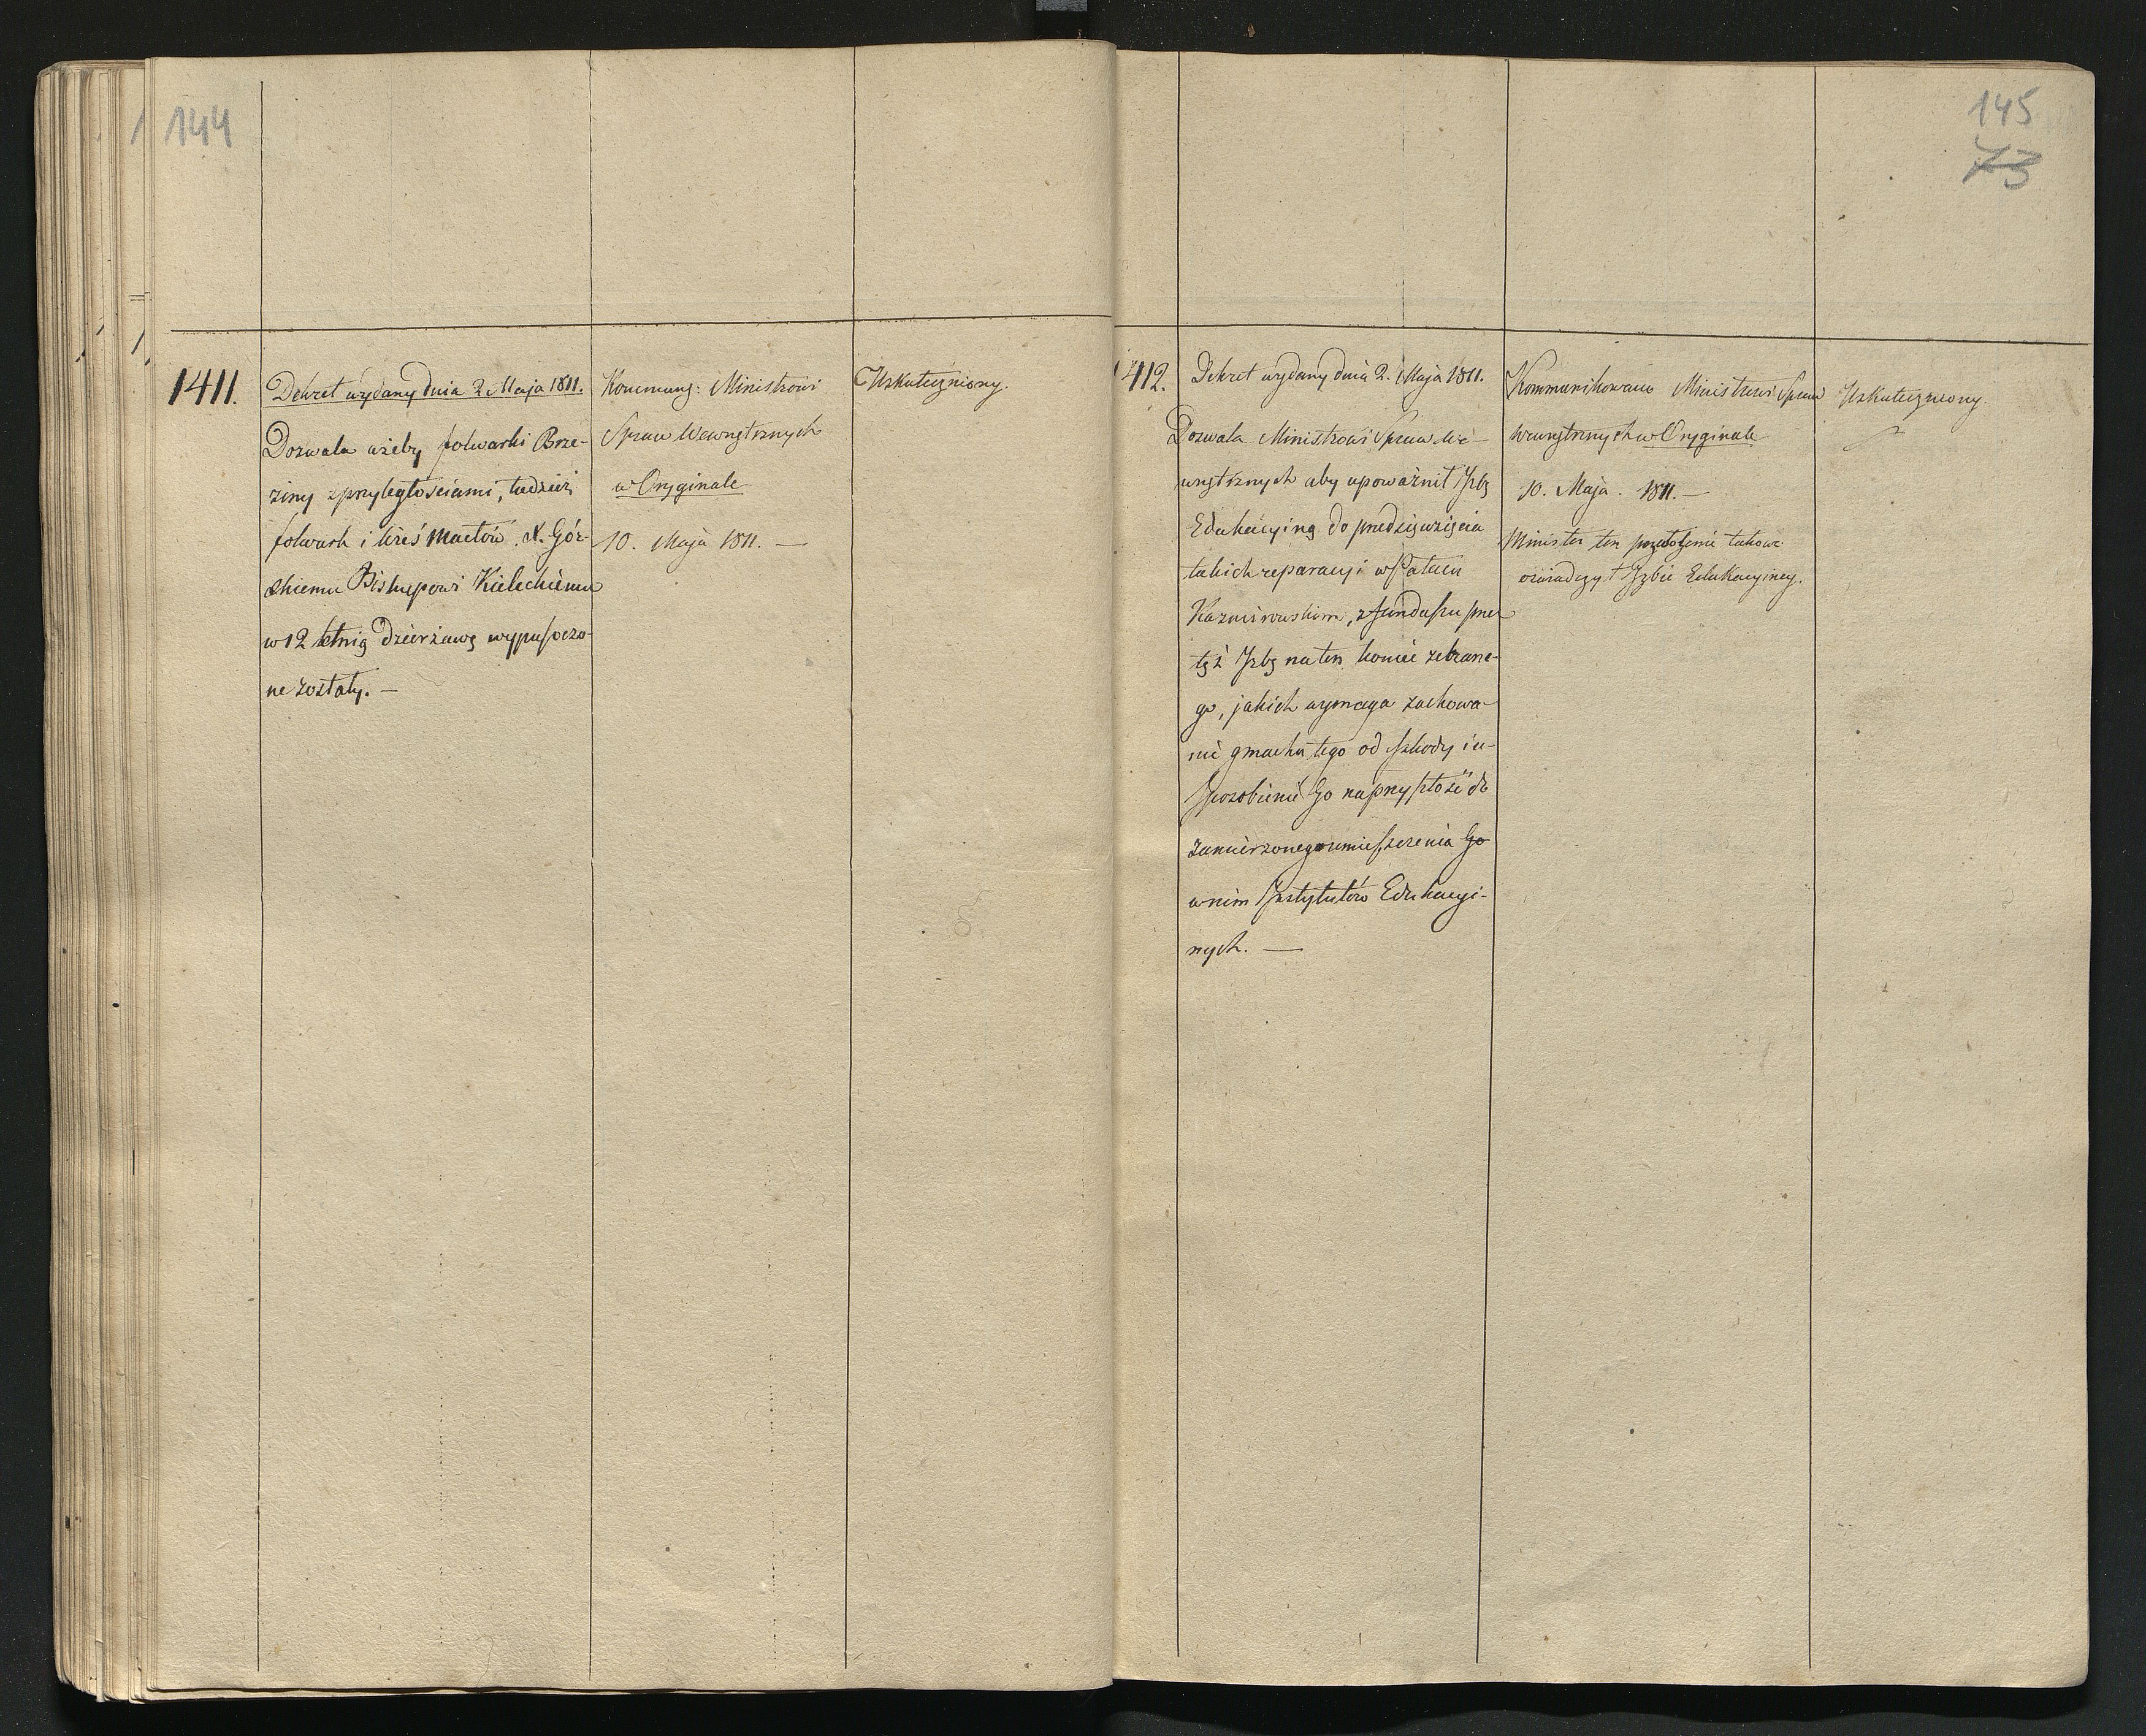 144
1411.
Dekret wydany dnia 2 Maja 1811.
Dozwala ażeby folwarki Brze-
ziny z przyległościami, tudzież
folwark i wieś Maców X. Gór-
skiemu Biskupowi Kieleckiemu
w 12 letnią dzierżawę wypuszczo-
ne zostały. —
Kommung: Ministrowi
Spraw Wewnętrznych
w Oryginale
10. Maja 1811. —
Uskuteczniony.
145
73
1412.
Dekret wydany dnia 2. Maja 1811.
Dozwala Ministrowi Spraw We-
wnętrznych aby upoważnił Izbę
Edukacyiną do przedsięwzięcia
takich reparacyi w Pałacu
Kazmirowskim, z funduszu przez
tęż Izbę na ten koniec zebrane-
go, jakich wymaga zachowa-
nie gmachu tego od szkody i u-
sposobienie Go na przyszłość do
zamierzonego umieszczenia Go
w nim Instytutów Edukacyi-
nych. —
Kommunikowano Ministrowi Spraw
Wewnętrznych w Oryginale
10. Maja. 1811. —
Minister ten przełożenie takowe
oświadczył Izbie Edukacyiney.
Uskuteczniony